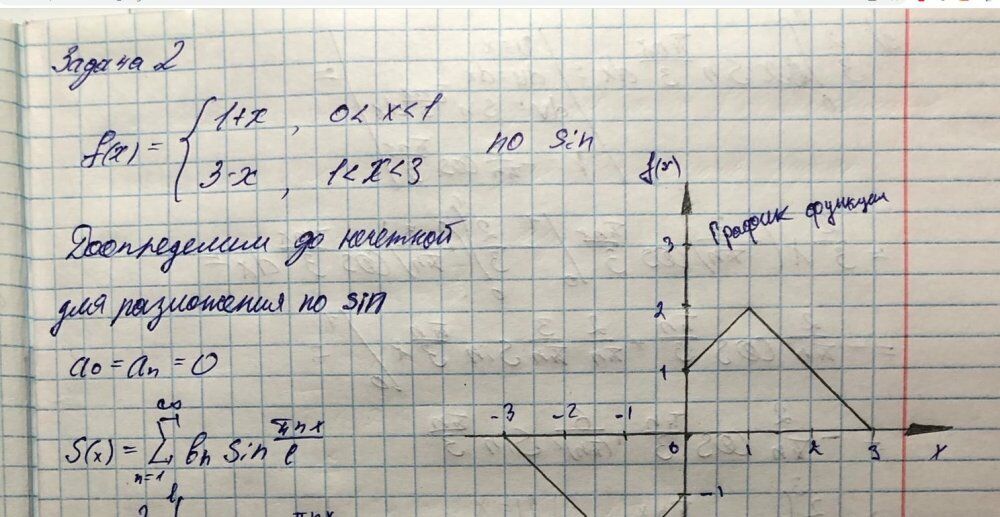 Задача 2
f(x) = { 1+x , 0 < x < 1
3-x , 1 < x < 3
по sin
Доопределим до нечетной
для разложения по sin
a₀ = aₙ = 0
S(x) = ∑ₙ₌₁^∞ bₙ sin πnx/l
πnx
f(x)
График функции
3
2
1
-3 -2 -1 0 1 2 3 x
-1